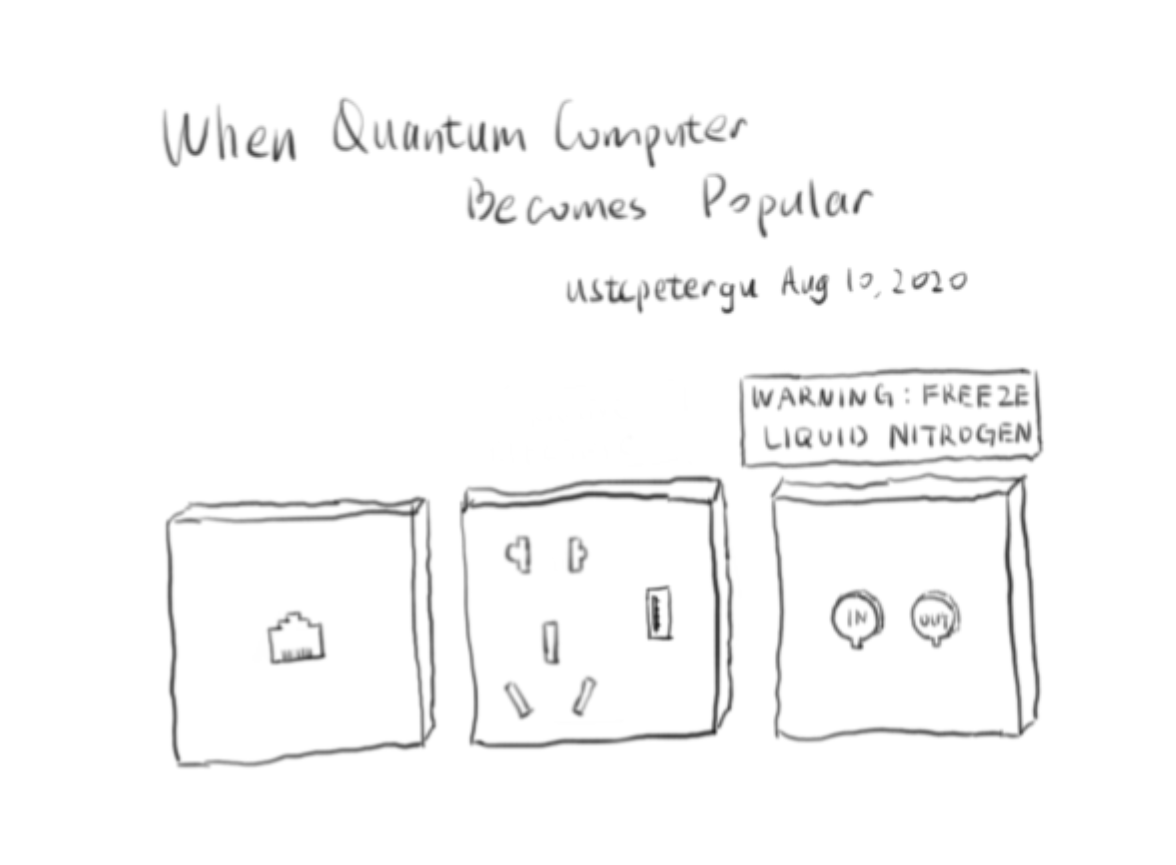 When Quantum Computer
Becomes Popular
ustcpetergu Aug 10, 2020
WARNING: FREEZE
LIQUID NITROGEN
IN
OUT